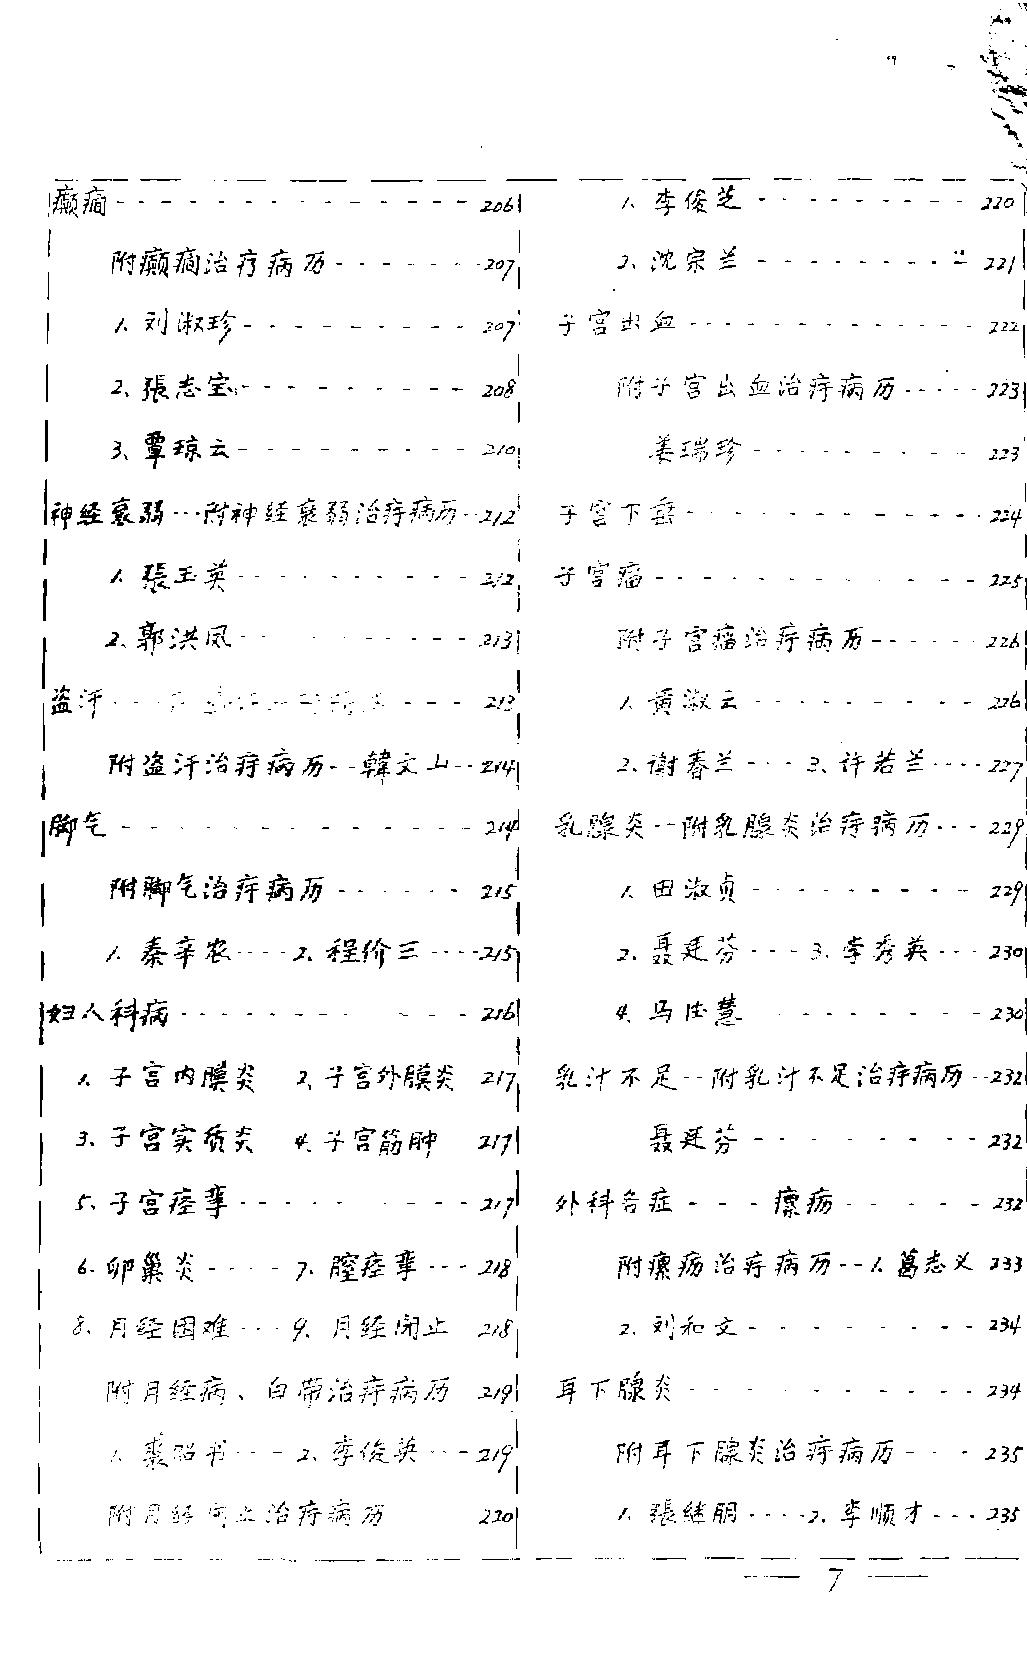 癲癎 - - - - - - - - - - - - 206
附癲癎治疗病历 - - - - - - 207
1. 刘淑珍 - - - - - - - - - 207
2. 張志宝 - - - - - - - - - 208
3. 覃琼云 - - - - - - - - - 210
神经衰弱 --- 附神经衰弱治疗病历 -- 212
1. 張玉英 - - - - - - - - - 212
2. 郭洪凤 - - - - - - - - - 213
盗汗 - - - - - - 213
附盗汗治疗病历 -- 韓文山 -- 214
脚气 - - - - - - - - - - - - 214
附脚气治疗病历 - - - - - - 215
1. 秦辛农 ---- 2. 程价三 ---- 215
妇人科病 - - - - - - - - - - 216
1. 子宫内膜炎 2. 子宫外膜炎 217
3. 子宫实质炎 4. 子宫筋肿 217
5. 子宫痉挛 - - - - - - - - 217
6. 卵巢炎 ---- 7. 膣痉挛 --- 218
8. 月经困难 --- 9. 月经闭止 218
附月经病、白带治疗病历 219
1. 裘昭书 --- 2. 李俊英 --- 219
附月经闭止治疗病历 220
1. 李俊芝 - - - - - - - - - 220
2. 沈宗兰 - - - - - - - - - 221
子宫出血 - - - - - - - - - - 222
附子宫出血治疗病历 ----- 223
姜瑞珍 - - - - - - - - - 223
子宫下垂 - - - - - - - - - - 224
子宫瘤 - - - - - - - - - - - 225
附子宫瘤治疗病历 ------ 226
1. 黄淑云 - - - - - - - - - 226
2. 谢春兰 --- 3. 许若兰 ---- 227
乳腺炎 -- 附乳腺炎治疗病历 --- 229
1. 田淑贞 - - - - - - - - - 229
2. 聂廷芬 --- 3. 李秀英 --- 230
4. 马佳慧 - - - - - - - - 230
乳汁不足 -- 附乳汁不足治疗病历 -- 232
聂廷芬 - - - - - - - - - 232
外科各症 - - - 瘰疬 - - - - - 232
附瘰疬治疗病历 -- 1. 葛志义 233
2. 刘和文 - - - - - - - - - 234
耳下腺炎 - - - - - - - - - - 234
附耳下腺炎治疗病历 - - - 235
1. 張继朋 ---- 2. 李顺才 --- 235
— 7 —